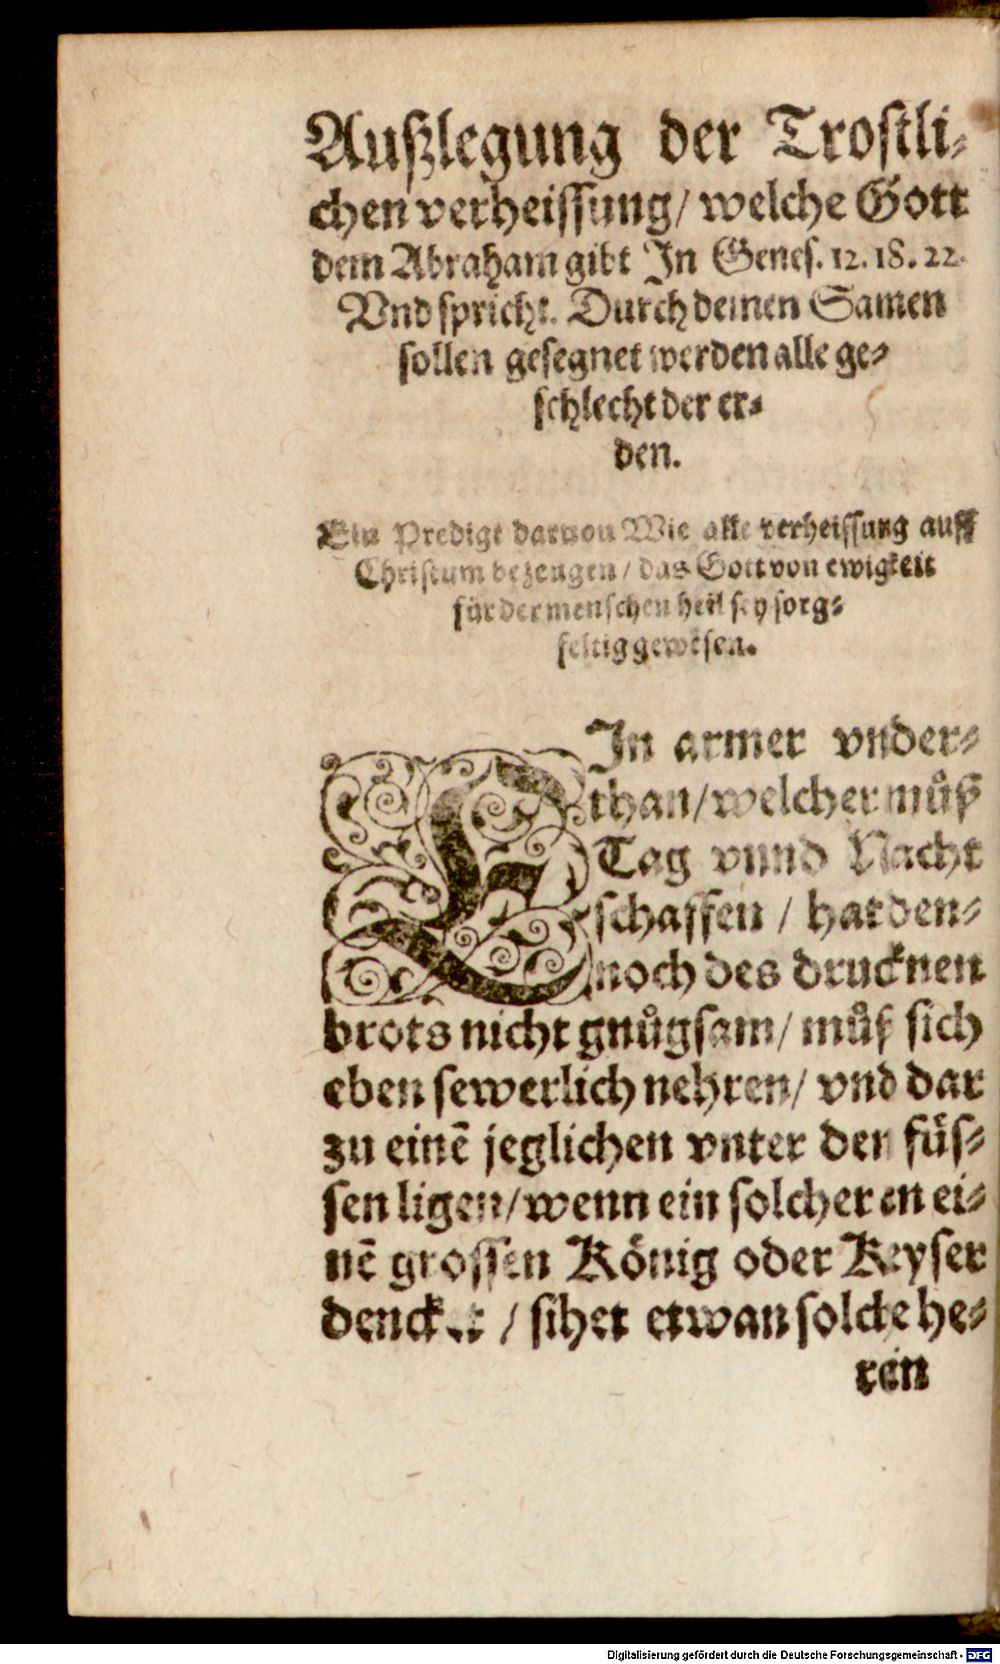 Außlegung der Trostli⸗
chen verheissung/ welche Gott
dem Abraham gibt In Genes. 12. 18. 22.
Vnd spricht. Durch deinen Samen
sollen gesegnet werden alle ge⸗
schlecht der er⸗
den.
Ein Predigt daruon Wie alle verheissung auff
Christum bezeugen/ das Gott von ewigkeit
für der menschen heil sey sorg⸗
feltig gewesen.
EIn armer vnder⸗
than/ welcher můß
Tag vnnd Nacht
schaffen / hat den⸗
noch des drucknen
brots nicht gnůgsam/ můß sich
eben sewerlich nehren/ vnd dar
zu einē jeglichen vnter den füs⸗
sen ligen/ wenn ein solcher an ei⸗
nē grossen König oder Keyser
dencket / sihet etwan solche he⸗
ren
Digitalisierung gefördert durch die Deutsche Forschungsgemeinschaft - DFG